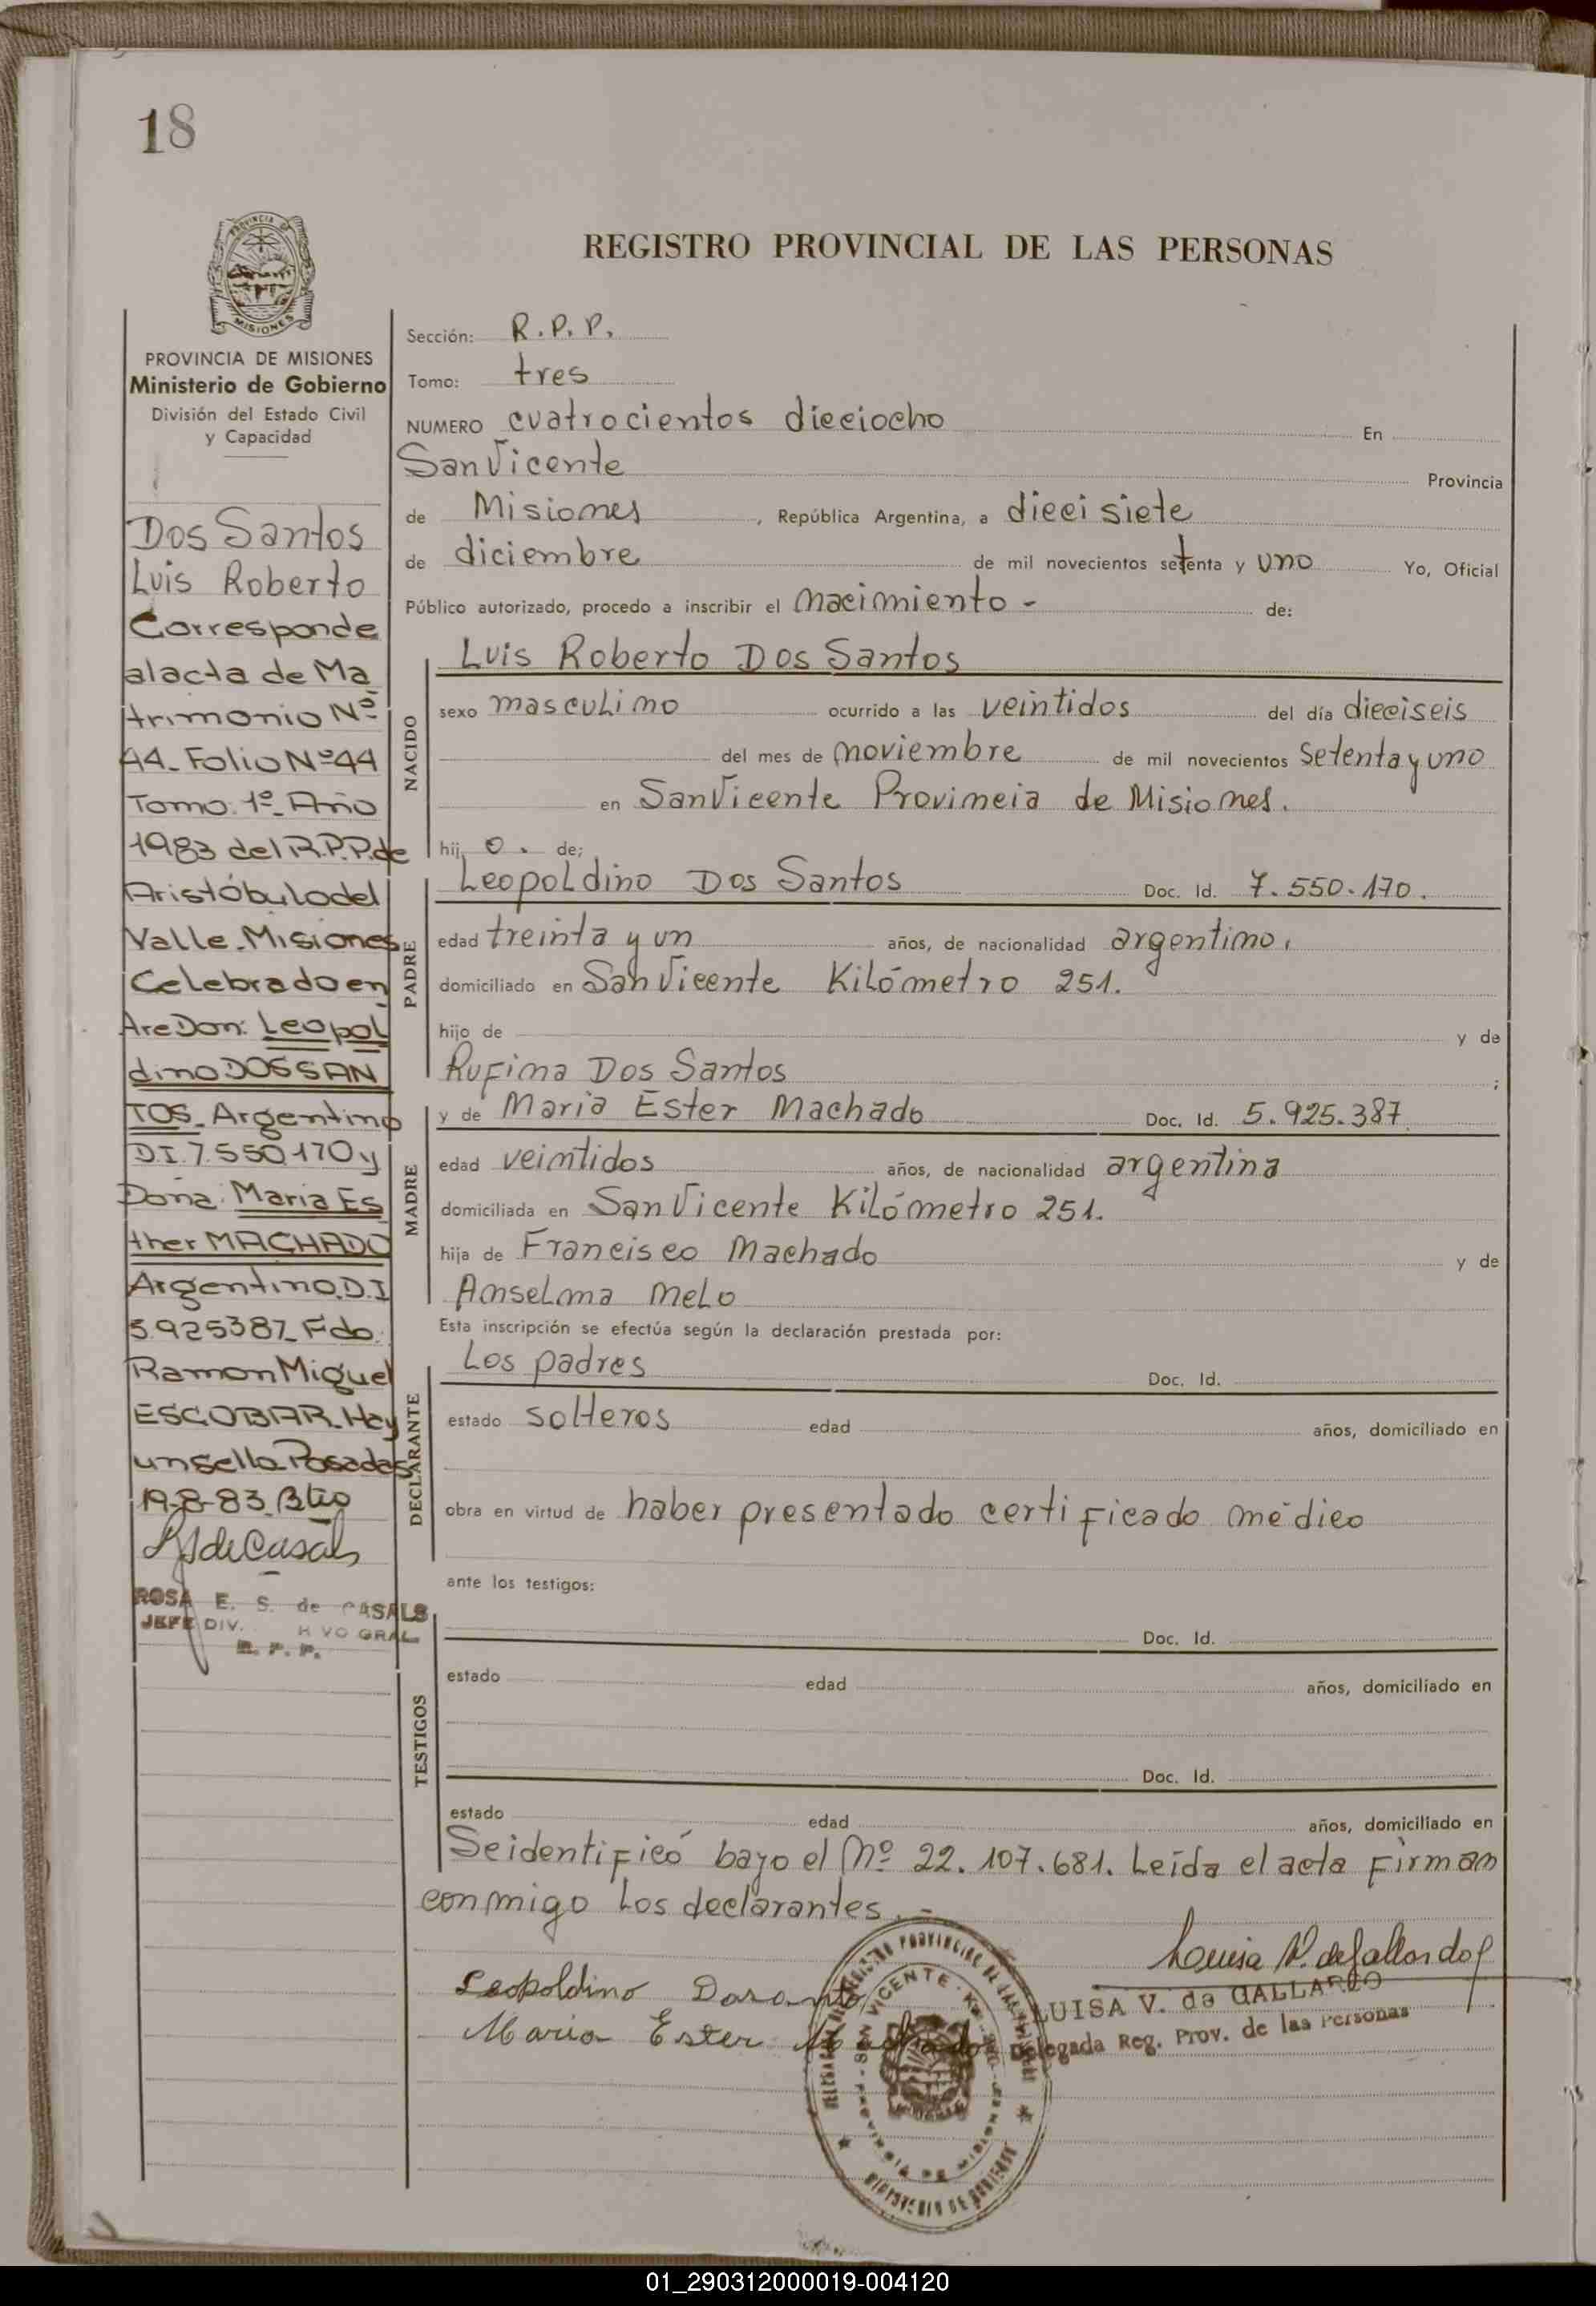 18
PROVINCIA DE
MISIONES
PROVINCIA DE MISIONES
Ministerio de Gobierno
División del Estado Civil
y Capacidad
Dos Santos
Luis Roberto
Corresponde
al acta de Ma
trimonio Nº
44- Folio Nº 44
Tomo: 1º- Año
1983 del R.P.P. de
Aristóbulo del
Valle. Misiones
Celebrado en
Are Don: Leopol
dino DOS SAN
TOS. Argentino
D.I. 7.550.170 y
Doña: Maria Es
ther MACHADO
Argentino. D.I
5.925387. Fdo.
Ramon Miguel
ESCOBAR. Hay
un sello Posadas
19-8-83.
ROSA E. S. de CASALS
JEFE DIV. VO GRAL.
R. P. P.
REGISTRO PROVINCIAL DE LAS PERSONAS
Sección: R.P.P.
Tomo: tres
NUMERO cuatrocientos dieciocho En
San Vicente Provincia
de Misiones, República Argentina, a dieci siete
de diciembre de mil novecientos setenta y uno Yo, Oficial
Público autorizado, procedo a inscribir el nacimiento - de:
NACIDO
Luis Roberto Dos Santos
sexo masculino ocurrido a las veintidos del día dieciseis
del mes de noviembre de mil novecientos setenta y uno
en San Vicente Provincia de Misiones.
hij o. de:
PADRE
Leopoldino Dos Santos Doc. Id. 7.550.170.
edad treinta y un años, de nacionalidad argentino.
domiciliado en San Vicente Kilómetro 251.
hijo de y de
Rufina Dos Santos ;
MADRE
y de Maria Ester Machado Doc. Id. 5.925.387
edad veintidos años, de nacionalidad argentina
domiciliada en San Vicente Kilómetro 251.
hija de Francisco Machado y de
Anselma Melo
Esta inscripción se efectúa según la declaración prestada por:
DECLARANTE
Los padres Doc. Id.
estado solteros edad años, domiciliado en
obra en virtud de haber presentado certificado médico
ante los testigos:
TESTIGOS
Doc. Id.
estado edad años, domiciliado en
Doc. Id.
estado edad años, domiciliado en
Se identificó bajo el Nº 22.107.681. Leída el acta firman
conmigo los declarantes.-
Leopoldino Dosanto
Maria Ester Machado
Luisa V. de Gallardo
LUISA V. de GALLARDO
Delegada Reg. Prov. de las Personas
SAN VICENTE
MINISTERIO DE GOBIERNO
01_290312000019-004120